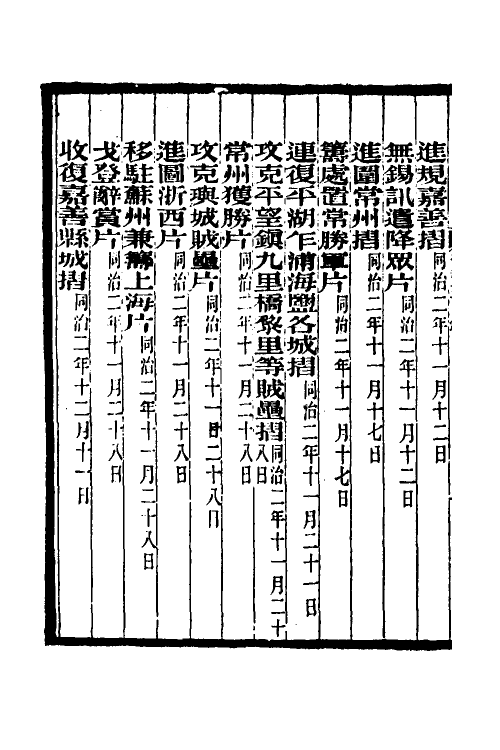 進規嘉善摺同治二年十一月十二日
無錫訊遣降眾片同治二年十一月十二日
進圍常州摺同治二年十一月十七日
籌處置常勝軍片同治二年十一月十七日
連復平湖乍浦海鹽各城摺同治二年十一月二十一日
攻克平望鎮九里橋黎里等賊壘摺同治二年十一月二十八日
常州獲勝片同治二年十一月二十八日
攻克璵城賊壘片同治二年十一月二十八日
進圖浙西片同治二年十一月二十八日
移駐蘇州兼籌上海片同治二年十一月二十八日
戈登辭賞片同治二年十一月二十八日
收復嘉善縣城摺同治二年十二月十一日